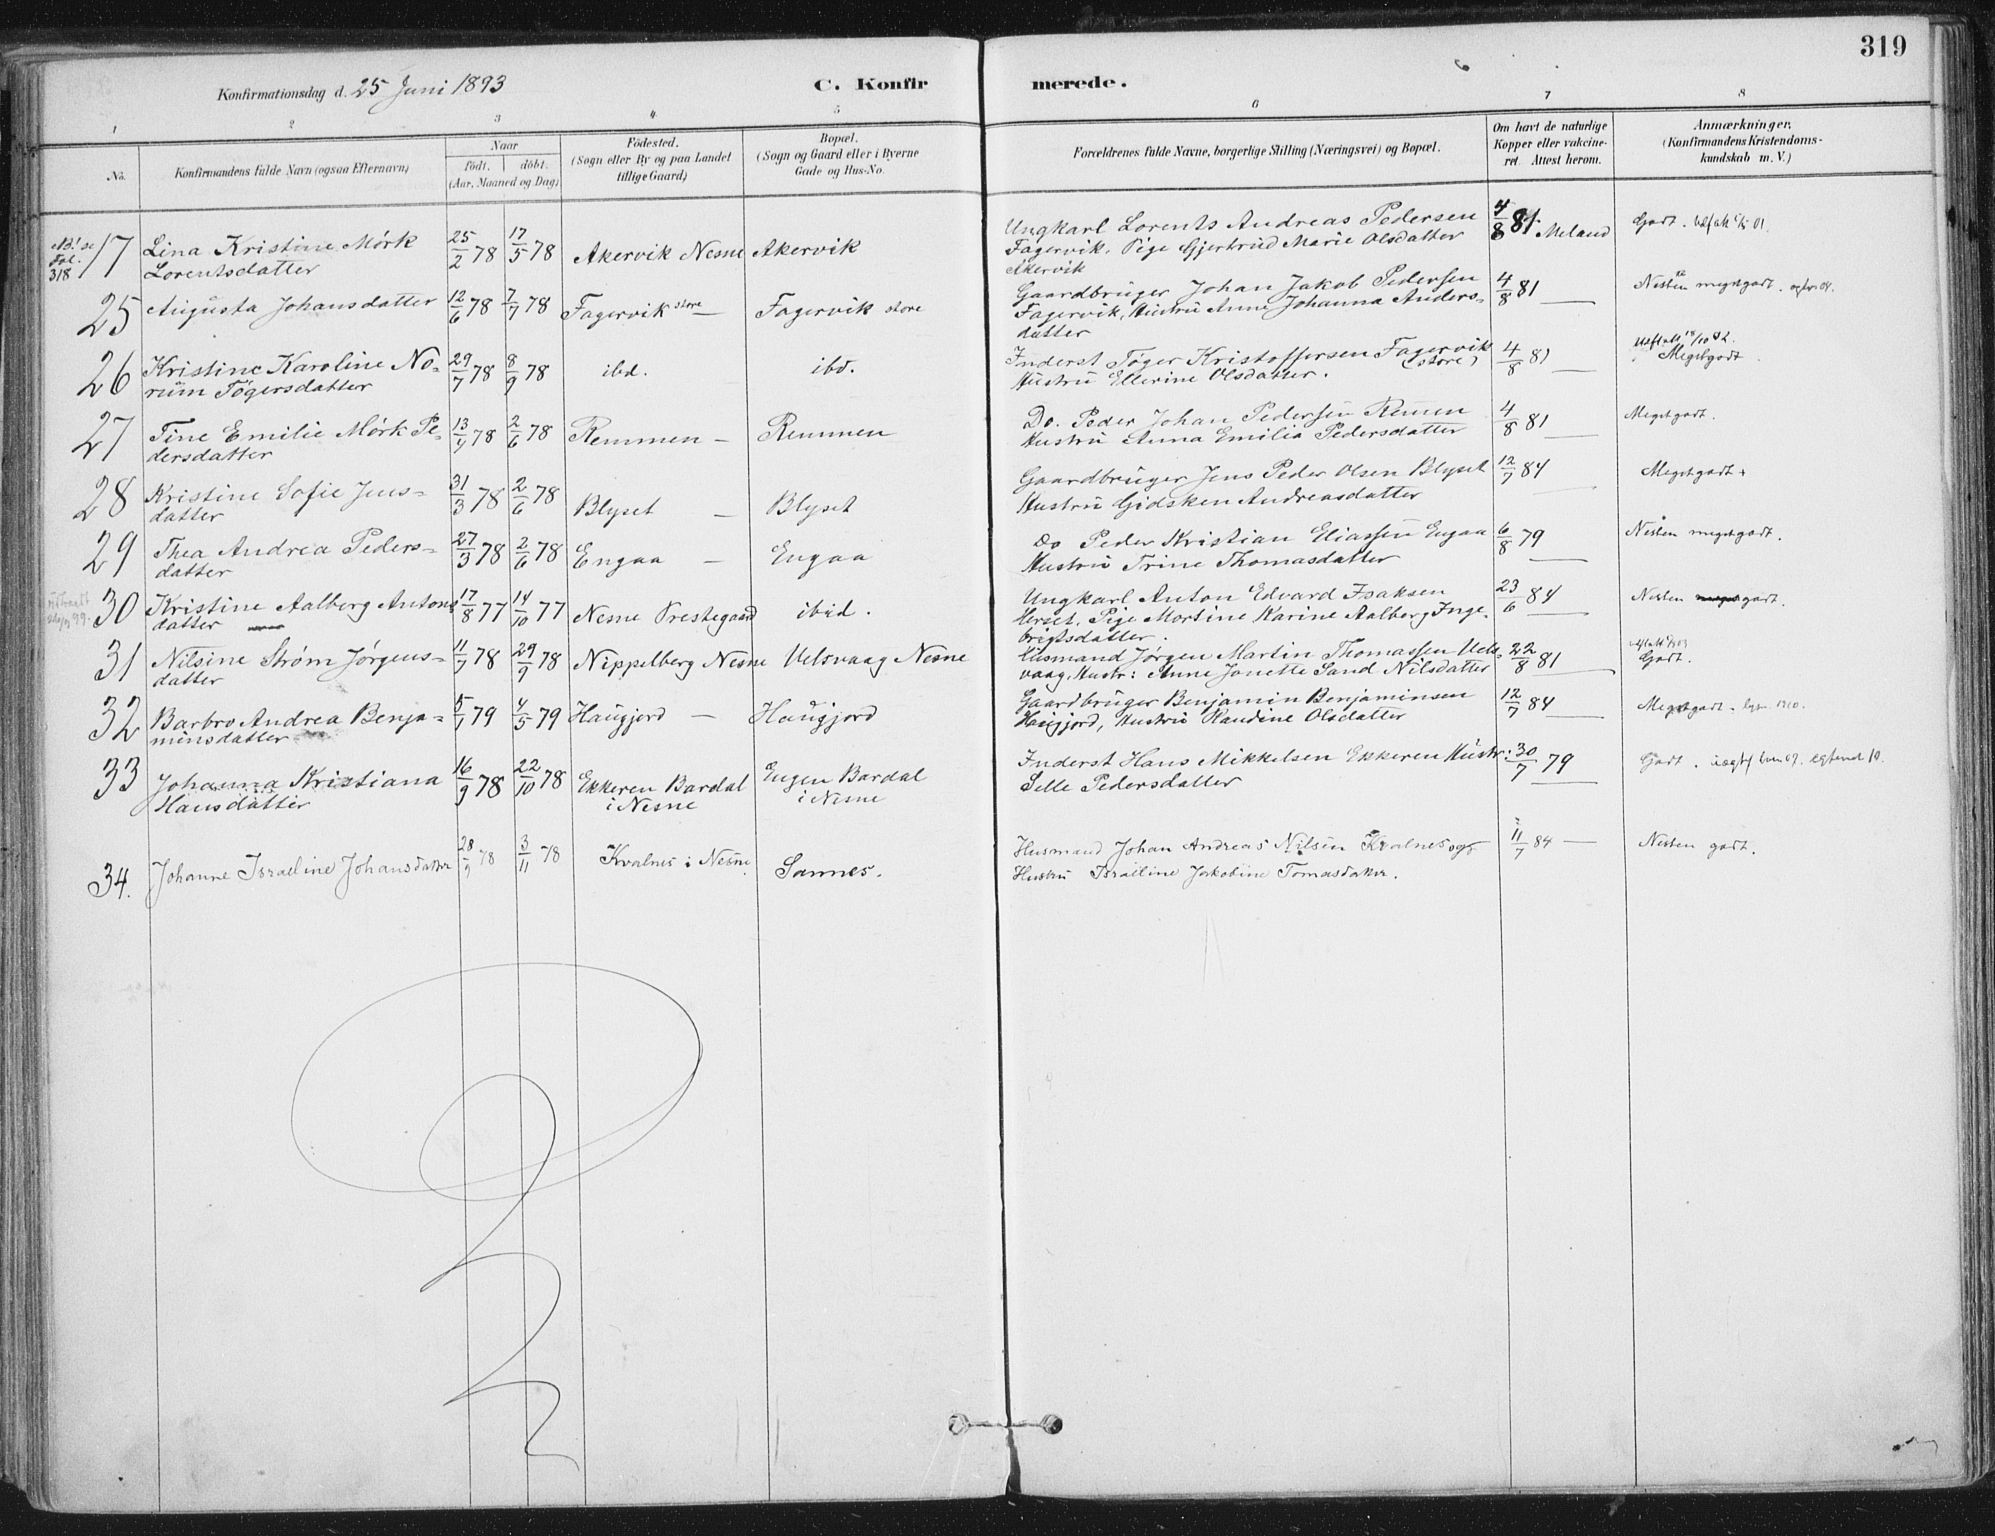 319
Konfirmationsdag d. 25 Juni 1893
C. Konfirmerede.
1 2 3 4 5 6 7 8
No.
Konfirmandens fulde Navn (ogsaa Efternavn)
Naar
födt. döbt.
(Aar, Maaned og Dag)
Födested.
(Sogn eller By og paa Landet
tillige Gaard)
Bopæl.
(Sogn og Gaard eller i Byerne
Gade og Hus-No.
Forældrenes fulde Navne, borgerlige Stilling (Næringsvei) og Bopæl.
Om havt de naturlige
Kopper eller vakcine-
ret. Attest herom.
Anmærkninger.
(Konfirmandens Kristendoms-
kundskab m. V.)
NB! se Fol. 318
17 Lina Kristine Mörk 25/2 78 17/5 78 Akervik Nesne Akervik Ungkarl Lorents Andreas Pedersen 4/8 81 Meland Godt.
Lorentsdatter Fagervik, Pige Gjertrud Marie Olsdatter
Akervik
25 Augusta Johansdatter 12/6 78 7/7 78 Fagervik store — Fagervik store Gaardbruger Johan Jakob Pedersen 4/8 81 — Nesten megetgodt.
Fagervik, Hustru Anne Johanna Anders-
datter
26 Kristine Karoline No- 29/7 78 8/9 78 ibd. ibd. Inderst Töger Kristoffersen Fagervik 4/8 81 — Megetgodt
rum Tögersdatter (store) Hustru Ellerine Olsdatter.
27 Tine Emilie Mörk Pe- 13/4 78 2/6 78 Remmen — Remmen Do. Peder Johan Pedersen Remen 4/8 81 — Megetgodt.
dersdatter Hustru Anna Emilia Pedersdatter
28 Kristine Sofie Jens- 31/3 78 2/6 78 Blyset — Blyset Gaardbruger Jens Peder Olsen Blyset 12/7 84 — Megetgodt.
datter Hustru Gidsken Andreasdatter
29 Thea Andrea Peders- 27/3 78 2/6 78 Engaa — Engaa Do Peder Kristian Eliassen Engaa 6/8 79 — Nesten megetgodt.
datter Hustru Trine Thomasdatter
30 Kristine Aalberg Antons 17/8 77 14/10 77 Nesne Prestegaard ibid. Ungkarl Anton Edvard Isaksen 23/6 84 — Nesten meget godt.
datter Herset, Pige Mortine Karine Aalberg Inge-
brigtsdatter.
31 Nilsine Strøm Jørgens- 11/7 78 29/9 78 Nippelberg Nesne Velsvaag Nesne Husmand Jørgen Martin Thomassen Vels- 22/8 81 — Godt.
datter vaag, Hustr: Anne Jonette Sand Nilsdatter
32 Barbro Andrea Benja- 5/1 79 4/5 79 Haugjord — Haugjord Gaardbruger Benjamin Benjaminsen 12/7 84 — Megetgodt.
minsdatter Haugjord, Hustru Raudine Olsdatter
33 Johanna Kristiana 16/9 78 22/10 78 Ekkeren Bardal Engen Bardal Inderst Hans Mikkelsen Ekkeren Hustr: 30/7 79 — Godt.
Hansdatter i Nesne i Nesne Selle Pedersdatter
34. Johanne Israeline Johansdatter 28/9 78 3/11 78 Kvalnes i Nesne. Sannes. Husmand Johan Andreas Nilsen Kvalnes og 11/7 84 — Nesten godt.
Hustru Israeline Jakobine Tomasdatter.